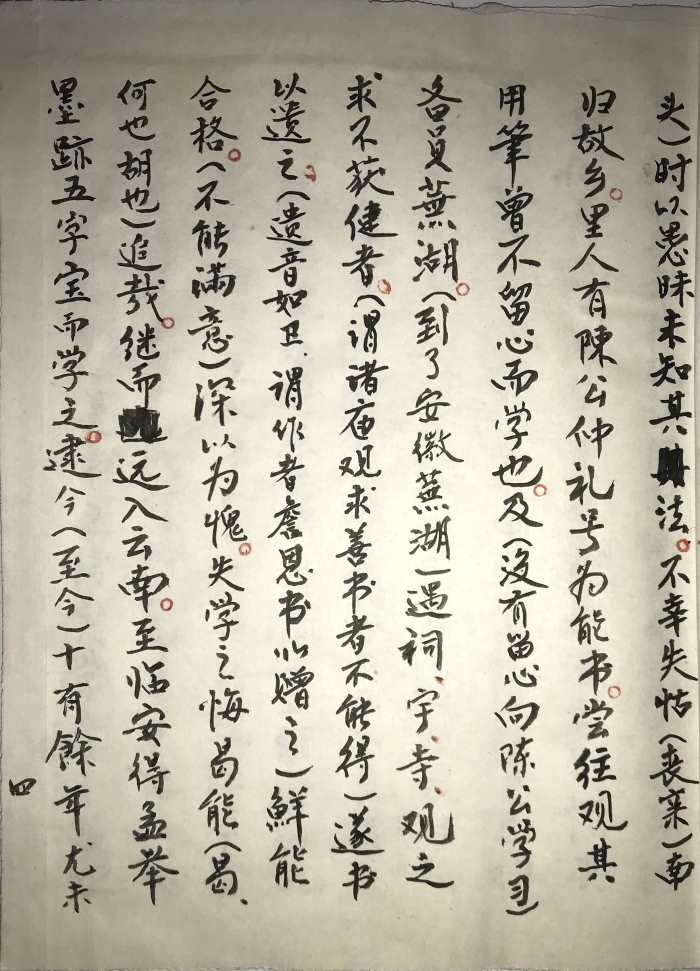 头）时以愚昧未知其法。不幸失怙（丧亲）南
归故乡。里人有陳公仲礼号为能书。尝往观其
用筆曾不留心而学也。及（没有留心向陈公学习）
各員蕪湖。（到了安徽蕪湖）遇祠、宇、寺、观之
求不获健者。（谓诸庙观求善书者不能得）遂书
以遗之。（遗音如卫、谓作者詹恩书以赠之）鮮能
合格。（不能满意）深以为愧。失学之悔曷能（曷、
何也胡也）追哉。继而远入云南。至临安得孟举
墨跡五字宝而学之。逮今（至今）十有餘年尤未
四